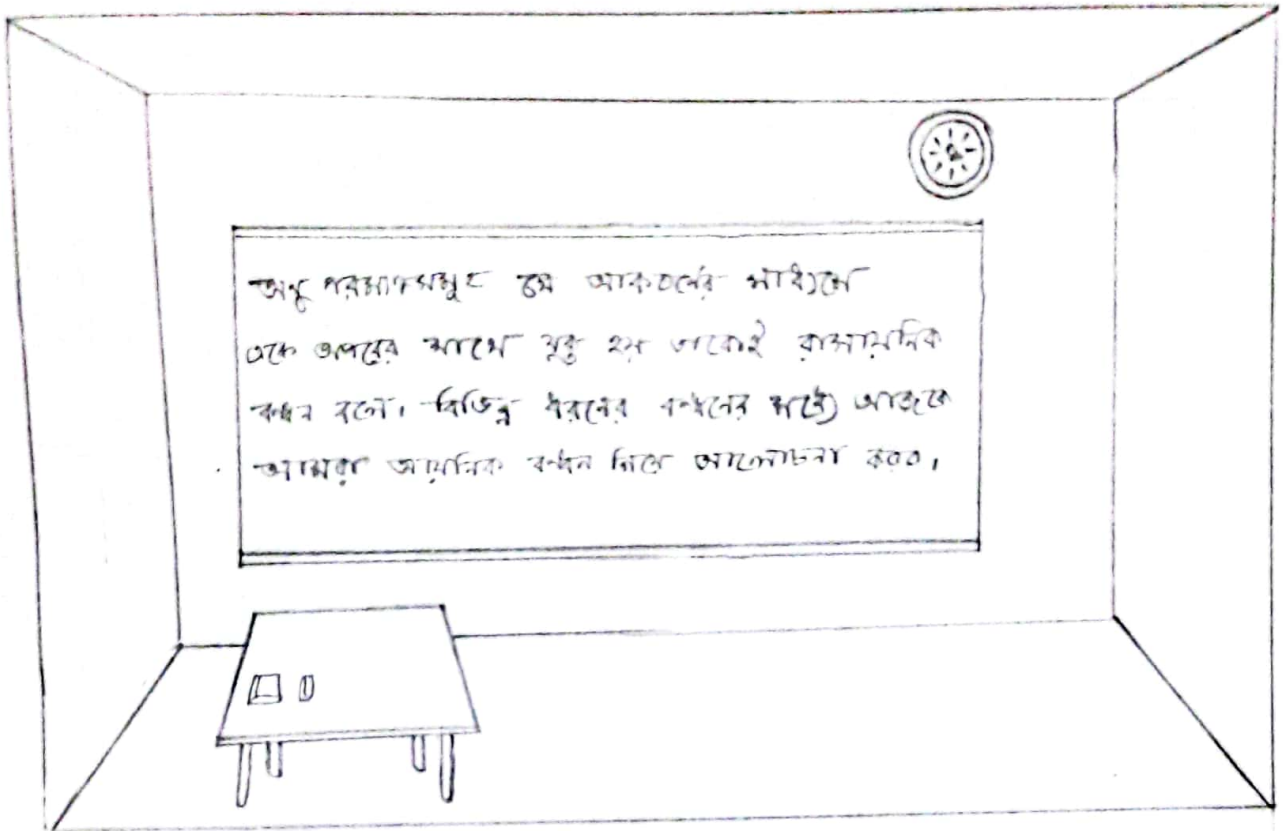 অনু পরমাণুসমূহ যে আকর্ষণের মাধ্যমে
একে অপরের সাথে যুক্ত হয় তাকেই রাসায়নিক
বন্ধন বলে। বিভিন্ন ধরনের বন্ধনের মধ্যে আজকে
আমরা আয়নিক বন্ধন নিয়ে আলোচনা করব।